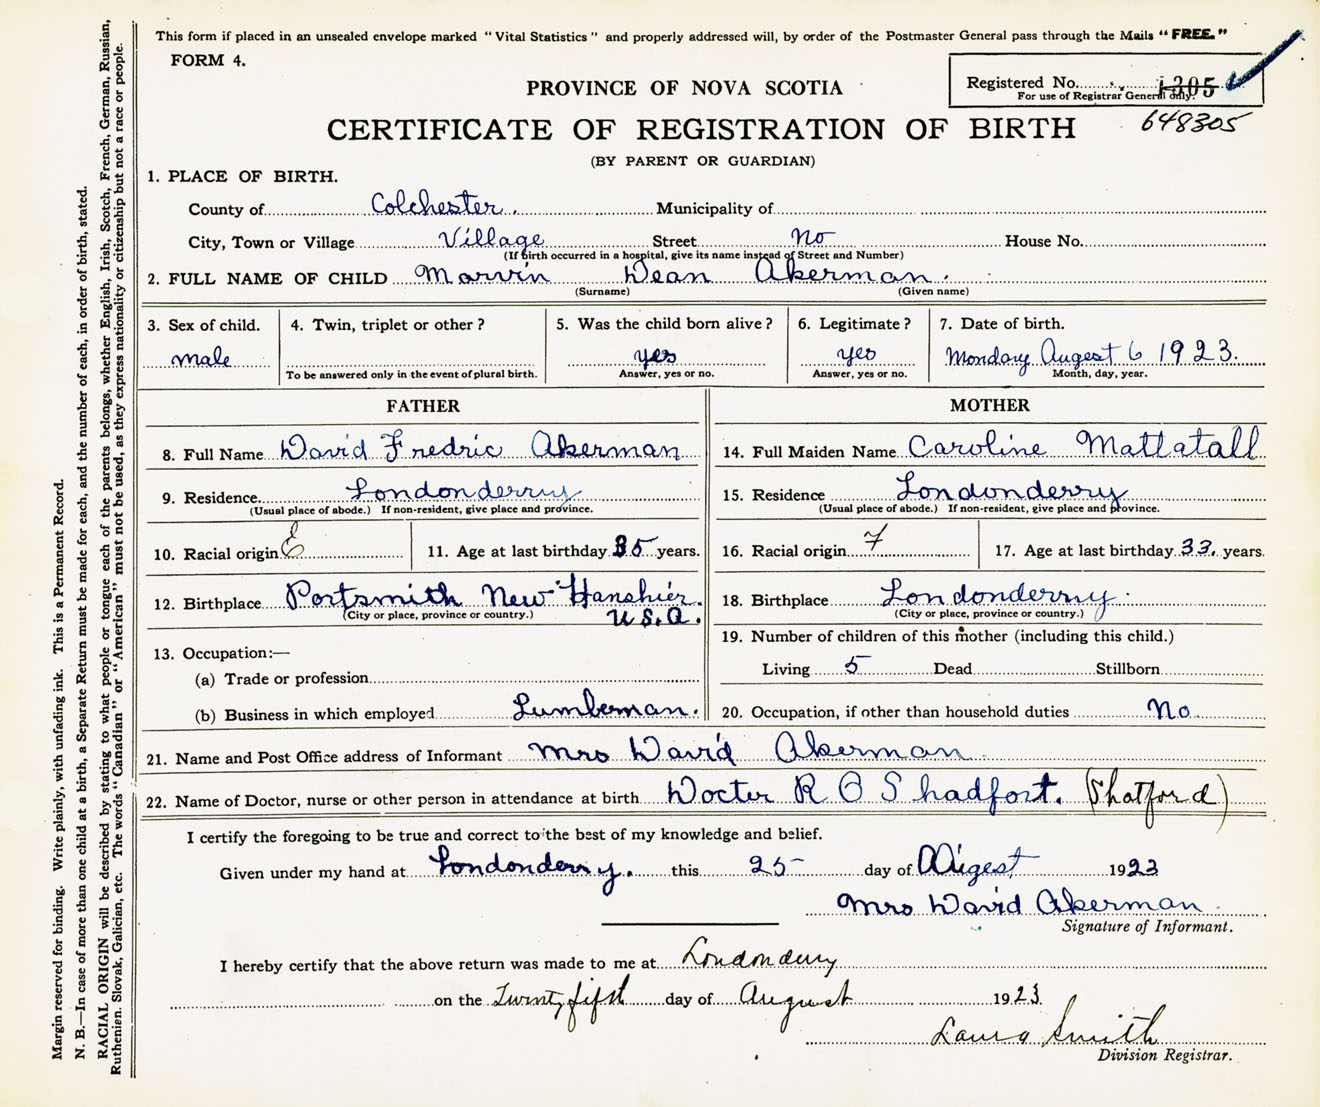 This form if placed in an unsealed envelope marked "Vital Statistics" and properly addressed will, by order of the Postmaster General pass through the Mails "FREE."
FORM 4.
PROVINCE OF NOVA SCOTIA
Registered No. 1305
For use of Registrar General only.
648305
CERTIFICATE OF REGISTRATION OF BIRTH
(BY PARENT OR GUARDIAN)
1. PLACE OF BIRTH.
County of Colchester. Municipality of
City, Town or Village Village Street No House No.
(If birth occurred in a hospital, give its name instead of Street and Number)
2. FULL NAME OF CHILD Marvin Dean Akerman.
(Surname) (Given name)
3. Sex of child. 4. Twin, triplet or other? 5. Was the child born alive? 6. Legitimate? 7. Date of birth.
male yes yes Monday Augest 6 1923.
To be answered only in the event of plural birth. Answer, yes or no. Answer, yes or no. Month, day, year.
FATHER MOTHER
8. Full Name David Fredric Akerman 14. Full Maiden Name Caroline Mattatall
9. Residence. Londonderry 15. Residence Londonderry
(Usual place of abode.) If non-resident, give place and province. (Usual place of abode.) If non-resident, give place and province.
10. Racial origin E 11. Age at last birthday 35 years. 16. Racial origin F 17. Age at last birthday 33. years.
12. Birthplace Portsmith New Hanshier. 18. Birthplace Londonderry.
(City or place, province or country.) U.S.A. (City or place, province or country.)
19. Number of children of this mother (including this child.)
13. Occupation:—
Living 5 Dead Stillborn
(a) Trade or profession
(b) Business in which employed Lumberman. 20. Occupation, if other than household duties No
21. Name and Post Office address of Informant Mrs David Akerman
22. Name of Doctor, nurse or other person in attendance at birth Docter R O Shadfort. (Shatford)
I certify the foregoing to be true and correct to the best of my knowledge and belief.
Given under my hand at Londonderry. this 25 day of Augest 1923
Mrs David Akerman
Signature of Informant.
I hereby certify that the above return was made to me at Londonderry
on the Twenty fifth day of August 1923.
Laura Smith
Division Registrar.
Margin reserved for binding. Write plainly, with unfading ink. This is a Permanent Record.
N. B.—In case of more than one child at a birth, a Separate Return must be made for each, and the number of each, in order of birth, stated.
RACIAL ORIGIN will be described by stating to what people or tongue each of the parents belongs, whether English, Irish, Scotch, French, German, Russian,
Ruthenien, Slovak, Galician, etc. The words "Canadian" or "American" must not be used, as they express nationality or citizenship but not a race or people.